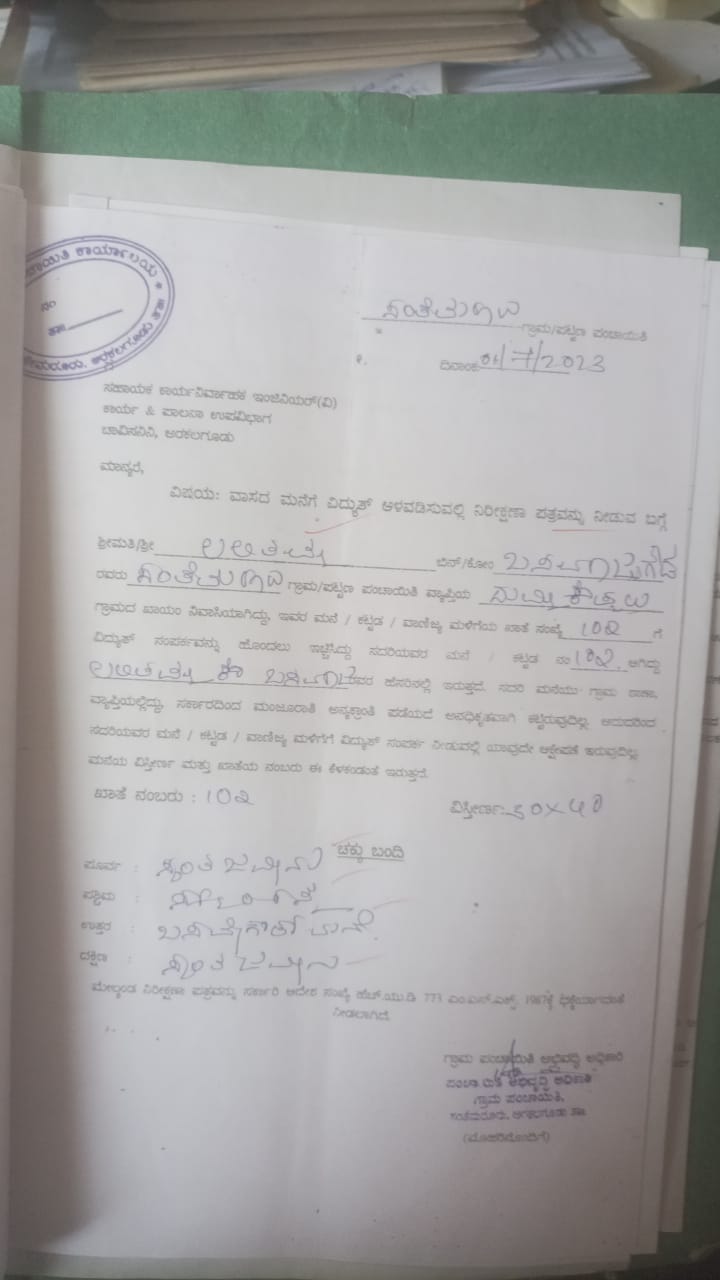 ಕಾರ್ಯಾಲಯ *
ನಂ
ತಾ
ಅರಕಲಗೂಡು
ಗ್ರಾಮ/ಪಟ್ಟಣ ಪಂಚಾಯಿತಿ
ದಿನಾಂಕ: 01/7/2023
ಸಹಾಯಕ ಕಾರ್ಯನಿರ್ವಾಹಕ ಇಂಜಿನಿಯರ್(ವಿ)
ಕಾರ್ಯ & ಪಾಲನಾ ಉಪವಿಭಾಗ
ಚಾವಿಸನಿನಿ, ಅರಕಲಗೂಡು
ಮಾನ್ಯರೆ,
ವಿಷಯ: ವಾಸದ ಮನೆಗೆ ವಿದ್ಯುತ್ ಅಳವಡಿಸುವಲ್ಲಿ ನಿರೀಕ್ಷಣಾ ಪತ್ರವನ್ನು ನೀಡುವ ಬಗ್ಗೆ
ಶ್ರೀಮತಿ/ಶ್ರೀ ಲಲಿತಮ್ಮ ಬಿನ್/ಕೋಂ
ರವರು ಗ್ರಾಮ/ಪಟ್ಟಣ ಪಂಚಾಯಿತಿ ವ್ಯಾಪ್ತಿಯ
ಗ್ರಾಮದ ಖಾಯಂ ನಿವಾಸಿಯಾಗಿದ್ದು, ಇವರ ಮನೆ / ಕಟ್ಟಡ / ವಾಣಿಜ್ಯ ಮಳಿಗೆಯ ಖಾತೆ ಸಂಖ್ಯೆ 102 ಗೆ
ವಿದ್ಯುತ್ ಸಂಪರ್ಕವನ್ನು ಹೊಂದಲು ಇಚ್ಚಿಸಿದ್ದು ಸದರಿಯವರ ಮನೆ / ಕಟ್ಟಡ ನಂ 102 ಆಗಿದ್ದು
ಲಲಿತಮ್ಮ ಕೊ ರವರ ಹೆಸರಿನಲ್ಲಿ ಇರುತ್ತದೆ. ಸದರಿ ಮನೆಯು ಗ್ರಾಮ ಠಾಣಾ,
ವ್ಯಾಪ್ತಿಯಲ್ಲಿದ್ದು, ಸರ್ಕಾರದಿಂದ ಮಂಜೂರಾತಿ ಅನ್ಯಕ್ರಾಂತಿ ಪಡೆಯದೆ ಅನಧಿಕೃತವಾಗಿ ಕಟ್ಟಿರುವುದಿಲ್ಲ. ಆದುದರಿಂದ
ಸದರಿಯವರ ಮನೆ / ಕಟ್ಟಡ / ವಾಣಿಜ್ಯ ಮಳಿಗೆಗೆ ವಿದ್ಯುತ್ ಸಂಪರ್ಕ ನೀಡುವಲ್ಲಿ ಯಾವುದೇ ಆಕ್ಷೇಪಣೆ ಇರುವುದಿಲ್ಲ
ಮನೆಯ ವಿಸ್ತೀರ್ಣ ಮತ್ತು ಖಾತೆಯ ನಂಬರು ಈ ಕೆಳಕಂಡಂತೆ ಇರುತ್ತದೆ.
ಖಾತೆ ನಂಬರು : 102 ವಿಸ್ತೀರ್ಣ: 30x40
ಚಕ್ಕು ಬಂದಿ
ಪೂರ್ವ : ಸ್ವಂತ ಜಮೀನು
ಪಶ್ಚಿಮ :
ಉತ್ತರ : ಮನೆ
ದಕ್ಷಿಣ : ಸ್ವಂತ ಜಮೀನು
ಮೇಲ್ಕಂಡ ನಿರೀಕ್ಷಣಾ ಪತ್ರವನ್ನು ಸರ್ಕಾರಿ ಆದೇಶ ಸಂಖ್ಯೆ ಹೆಚ್.ಯು.ಡಿ 773 ಎಂ.ಎನ್.ಎಕ್ಸ್. 1987ಕ್ಕೆ
ನೀಡಲಾಗಿದೆ.
ಗ್ರಾಮ ಪಂಚಾಯಿತಿ ಅಭಿವೃದ್ಧಿ ಅಧಿಕಾರಿ
ಪಂಚಾಯಿತಿ ಅಭಿವೃದ್ಧಿ ಅಧಿಕಾರಿ
ಗ್ರಾಮ ಪಂಚಾಯಿತಿ,
ಸಂತೆಮರೂರು, ಅರಕಲಗೂಡು ತಾ॥
(ಮೊಹರಿನೊಂದಿಗೆ)